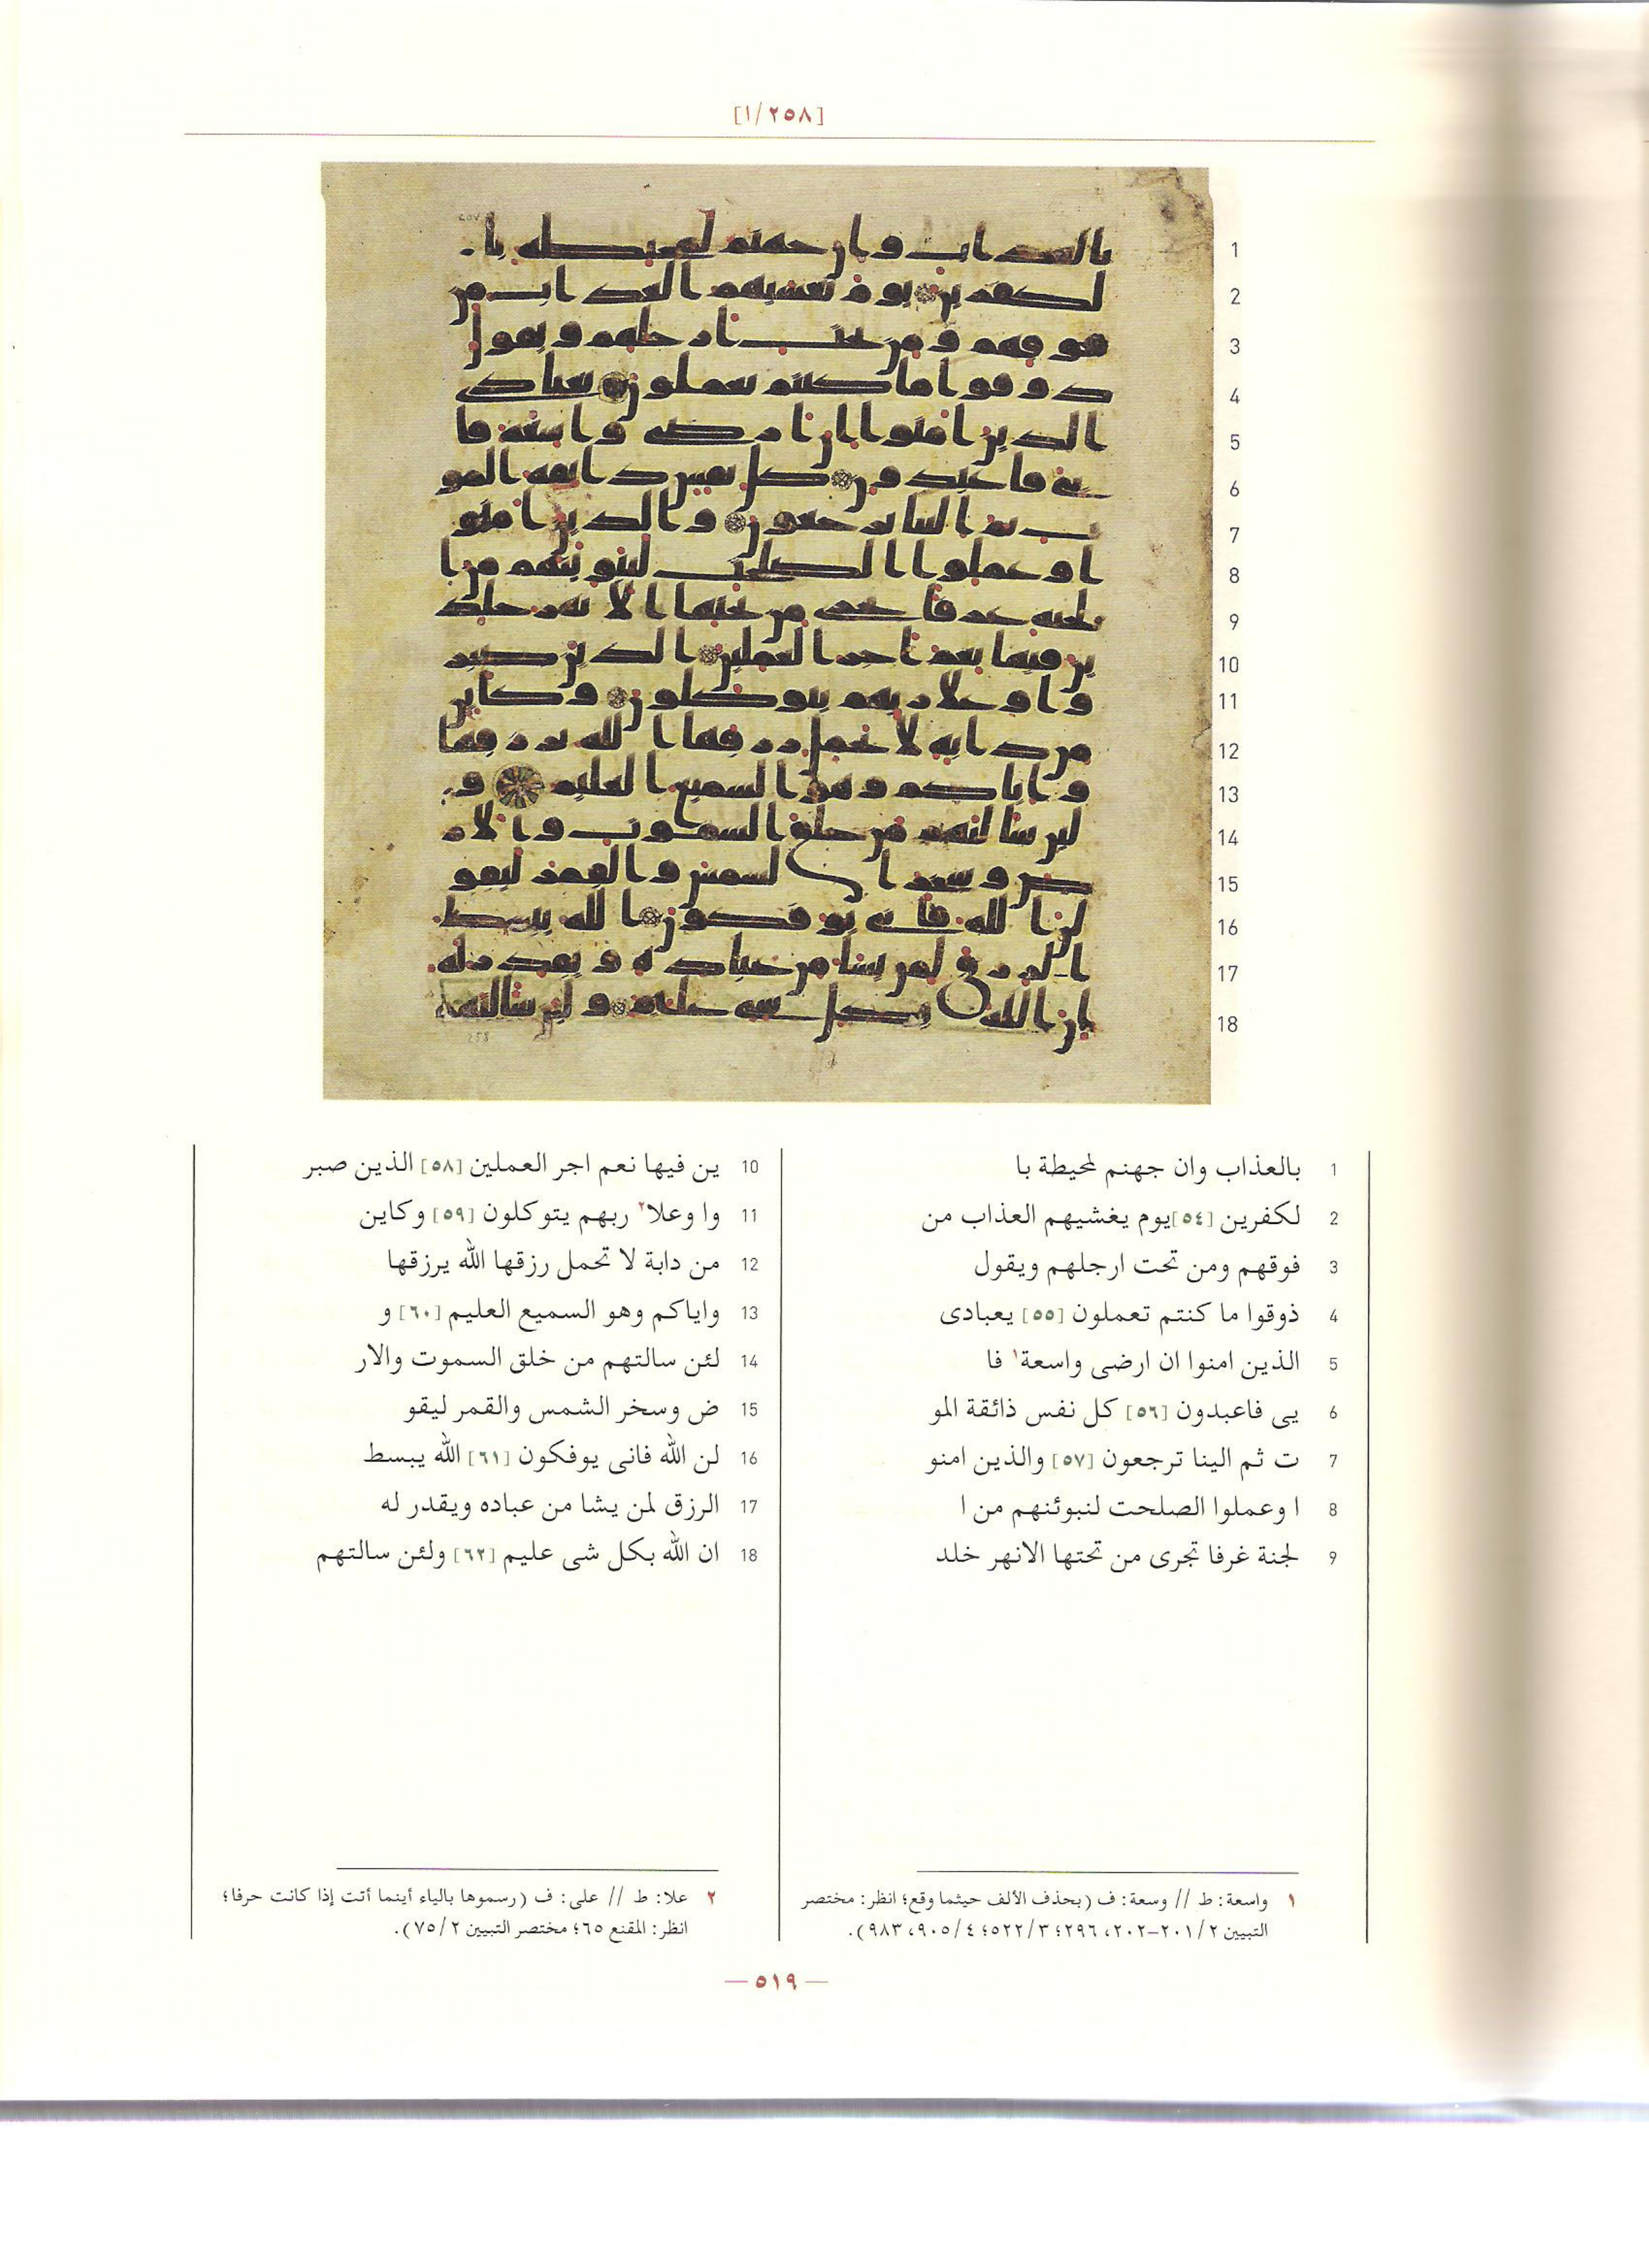 [٢٥٨/١]
1 بالعذاب وان جهنم لمحيطة با
2 لكفرين [٥٤] يوم يغشيهم العذاب من
3 فوقهم ومن تحت ارجلهم ويقول
4 ذوقوا ما كنتم تعملون [٥٥] يعبادى
5 الذين امنوا ان ارضى واسعة١ فا
6 يى فاعبدون [٥٦] كل نفس ذائقة المو
7 ت ثم الينا ترجعون [٥٧] والذين امنو
8 ا وعملوا الصلحت لنبوئنهم من ا
9 لجنة غرفا تجرى من تحتها الانهر خلد
10 ين فيها نعم اجر العملين [٥٨] الذين صبر
11 وا وعلا٢ ربهم يتوكلون [٥٩] وكاين
12 من دابة لا تحمل رزقها الله يرزقها
13 واياكم وهو السميع العليم [٦٠] و
14 لئن سالتهم من خلق السموت والار
15 ض وسخر الشمس والقمر ليقو
16 لن الله فانى يوفكون [٦١] الله يبسط
17 الرزق لمن يشا من عباده ويقدر له
18 ان الله بكل شى عليم [٦٢] ولئن سالتهم
١ واسعة: ط // وسعة: ف (بحذف الألف حيثما وقع؛ انظر: مختصر
التبيين ٢/ ٢٠١–٢٠٢، ٢٩٦؛ ٣/ ٥٢٢؛ ٤/ ٩٠٥، ٩٨٣).
٢ علا: ط // على: ف (رسموها بالياء أينما أتت إذا كانت حرفا؛
انظر: المقنع ٦٥؛ مختصر التبيين ٢/ ٧٥).
— ٥١٩ —